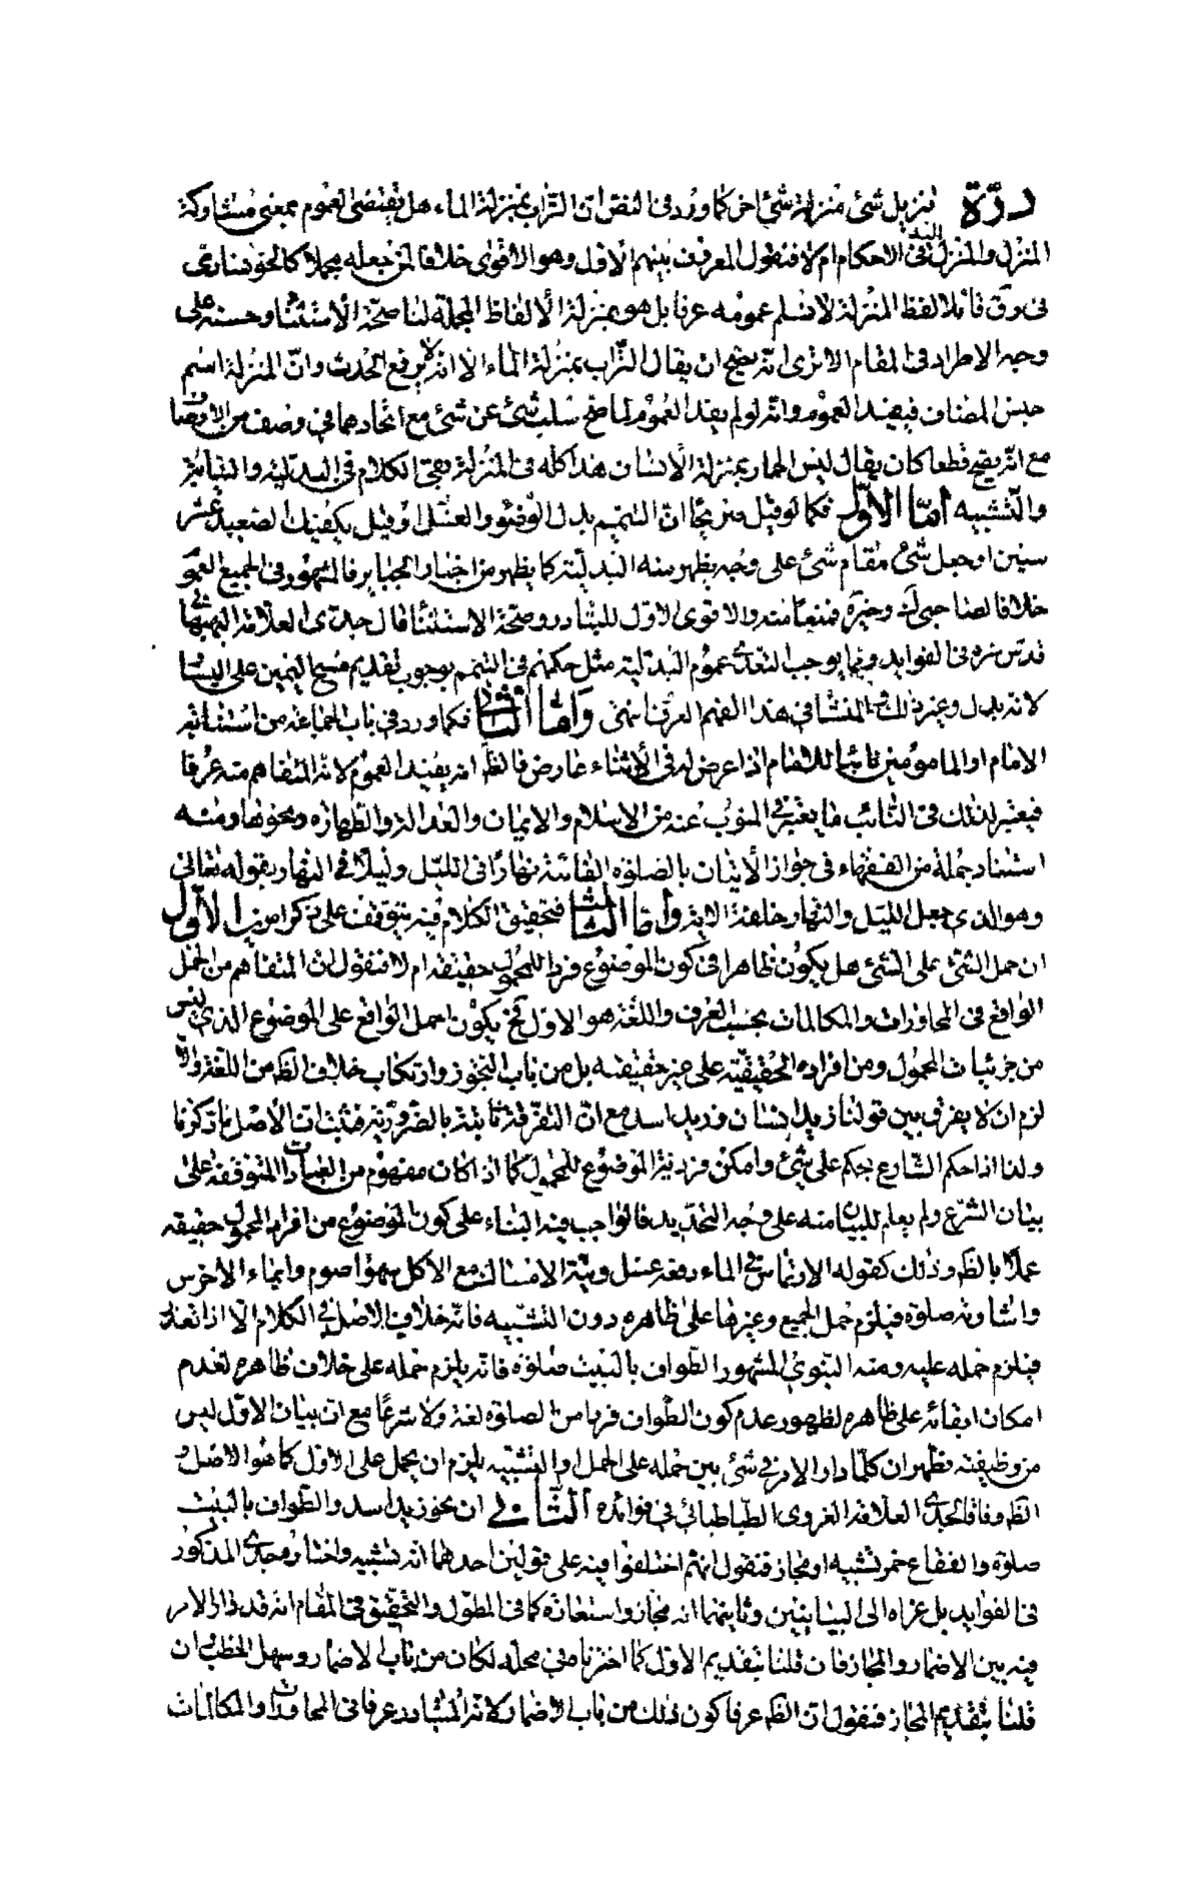 درّة تنزيل شئ منزلة شئ اخر كما ورد فى النص ان التراب بمنزلة الماء هل يقتضى العموم بمعنى مشاركة
المنزل والمنزل اليه فى الاحكام ام لا فنقول المعروف بينهم الاول وهو الاقوى خلافا لمن جعله مجملا كالخونسارى
فى ق قائلا لفظ المنزلة لا نسلم عمومه عرفا بل هو بمنزلة الالفاظ المجملة لنا صحّة الاستثناء وحسنه على
وجه الاطراد فى المقام الا ترى انّه يصح ان يقال التّراب بمنزلة الماء الا انه لا يرفع الحدث وانّ المنزلة اسم
جنس المضاف فيفيد العموم وانه لو لم يفد العموم لما صح سلب شئ عن شئ مع اتحادهما فى وصف من الاوصاف
مع انّه يصح قطعا كان يقال ليس الحمار بمنزلة الانسان هذا كله فى المنزلة بقى الكلام فى البدليّة والنيابة
والتّشبيه امّا الاوّل فكما لو قيل صريحًا انّ التيمّم بدل الوضوء والغسل او قيل يكفيك الصّعيد عشر
سنين او جعل شئ مقام شئ على وجه يظهر منه البدليّة كما يظهر من اخبار الجباير فالمشهور فى الجميع العموم
خلافا لصاحبى ك وخيرة فمنعا منه والاقوى الاوّل للتبادر وصحّة الاستثناء قال جدّى العلّامة البهبهانى
قدّس سره فى الفوايد وفيما يوجب التعدّى عموم البدليّة مثل حكمهم فى التيمم بوجوب تقديم مسح اليمين على اليسار
لانه بدل وغير ذلك ثم المنشا فى هذا الفهم العرف انتهى وامّا الثّانى فكما ورد فى باب الجماعة من استنابة
الامام او المامومين نائبا للامام اذا عرض له فى الاثناء عارض فالظ انه يفيد العموم لانه المتفاهم منه عرفا
فيعتبر لذلك فى النّائب ما يعتبر فى المنوب عنه من الاسلام والايمان والعدالة والطّهارة ونحوها ومنه
استناد جملة من الفقهاء فى جواز الاتيان بالصّلوة الفائتة نهارًا فى اللّيل وليلًا فى النّهار بقوله تعالى
وهو الذى جعل اللّيل والنّهار خلفة الاية وامّا الثّالث فتحقيق الكلام فيه يتوقف على ذكر امرين الاوّل
ان حمل الشئ على الشئ هل يكون ظاهرا فى كون الموضوع فردا للمحمول حقيقة ام لا فنقول انّ المتفاهم من الحمل
الواقع فى المحاورات والمكالمات بحسب العرف واللّغة هو الاول فح يكون الحمل الواقع على الموضوع الذى ليس
من جزئيات المحمول ومن افراده الحقيقيّة على غير حقيقته بل من باب التجوز وارتكاب خلاف الظ من اللّغة والّا
لزم ان لا يفرق بين قولنا زيد انسان وزيد اسد مع انّ التفرقة ثابتة بالضّروريّة فثبت انّ الاصل ما ذكرنا
ولذا اذا حكم الشّارع بحكم على شئ وامكن فرديّة الموضوع للمحمول كما اذا كان مفهوم من العبادات المتوقفة على
بيان الشّرع ولم يعلم للبيان منه على وجه التحديد فالواجب فيه البناء على كون الموضوع من افراد المحمول حقيقة
عملًا بالظ وذلك كقوله الارتماس فى الماء دفعة غسل ونيّة الامساك مع الاكل سهوا صوم وايماء الاخرس
واشارته صلوة فيلزم حمل الجميع وغيرها على ظاهره دون التشبيه فانّه خلاف الاصل فى الكلام الّا اذا تعذّر
فيلزم حمله عليه ومنه النّبوىّ المشهور الطّواف بالبيت صلوة فانّه يلزم حمله على خلاف ظاهره لعدم
امكان ابقائه على ظاهره لظهور عدم كون الطّواف فردا من الصلوة لغة ولا شرعًا مع ان بيان الاوّل ليس
من وظيفته فظهر ان كلّما دار الامر فى شئ بين حمله على الحمل او التّشبيه يلزم ان يحمل على الاوّل كما هو الاصل و
الظ وفاقا لجدّى العلّامة الغروى الطّباطبائى فى فوائده الثّانى ان نحو زيد اسد والطّواف بالبيت
صلوة والفقاع خمر تشبيه او مجاز فنقول انهم اختلفوا فيه على قولين احدهما انّه تشبيه واختاره جدّى المذكور
فى الفوايد بل عزاه الى البيانيّين وثانيهما انه مجاز واستعارة كما فى المطوّل والتّحقيق فى المقام انّه قد دار الامر
فيه بين الاضمار والمجاز فان قلنا بتقديم الاوّل كما اخترنا فى محلّه لكان من باب الاضمار وسهل الخطب وان
قلنا بتقديم المجاز فنقول ان الظ عرفا كون ذلك من باب الاضمار لانّه المتبادر عرفا فى المحاورات والمكالمات